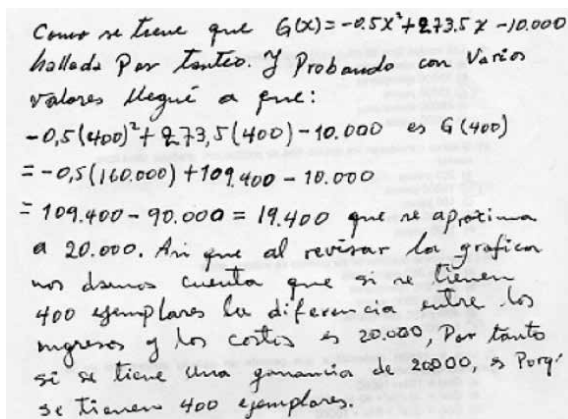 Como se tiene que G(x)=-0.5x²+273.5x-10.000
hallada Por tanteo. Y Probando con Varios
valores llegué a que:
-0,5(400)²+273,5(400)-10.000 es G(400)
=-0,5(160.000)+109.400-10.000
=109.400-90.000=19.400 que se aproxima
a 20.000. Asi que al revisar la grafica
nos damos cuenta que si se tienen
400 ejemplares la diferencia entre los
ingresos y los costos es 20.000, Por tanto
si se tiene una ganancia de 20000, es Porq'
se tienen 400 ejemplares.